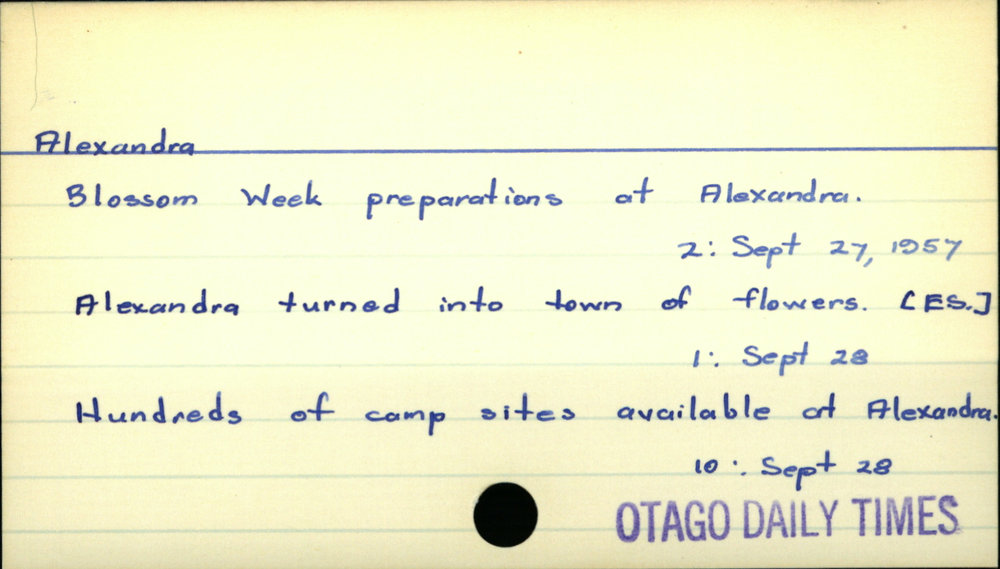 Alexandra
Blossom Week preparations at Alexandra.
2: Sept 27, 1957
Alexandra turned into town of flowers. [ES.]
1: Sept 28
Hundreds of camp sites available at Alexandra.
10: Sept 28
OTAGO DAILY TIMES